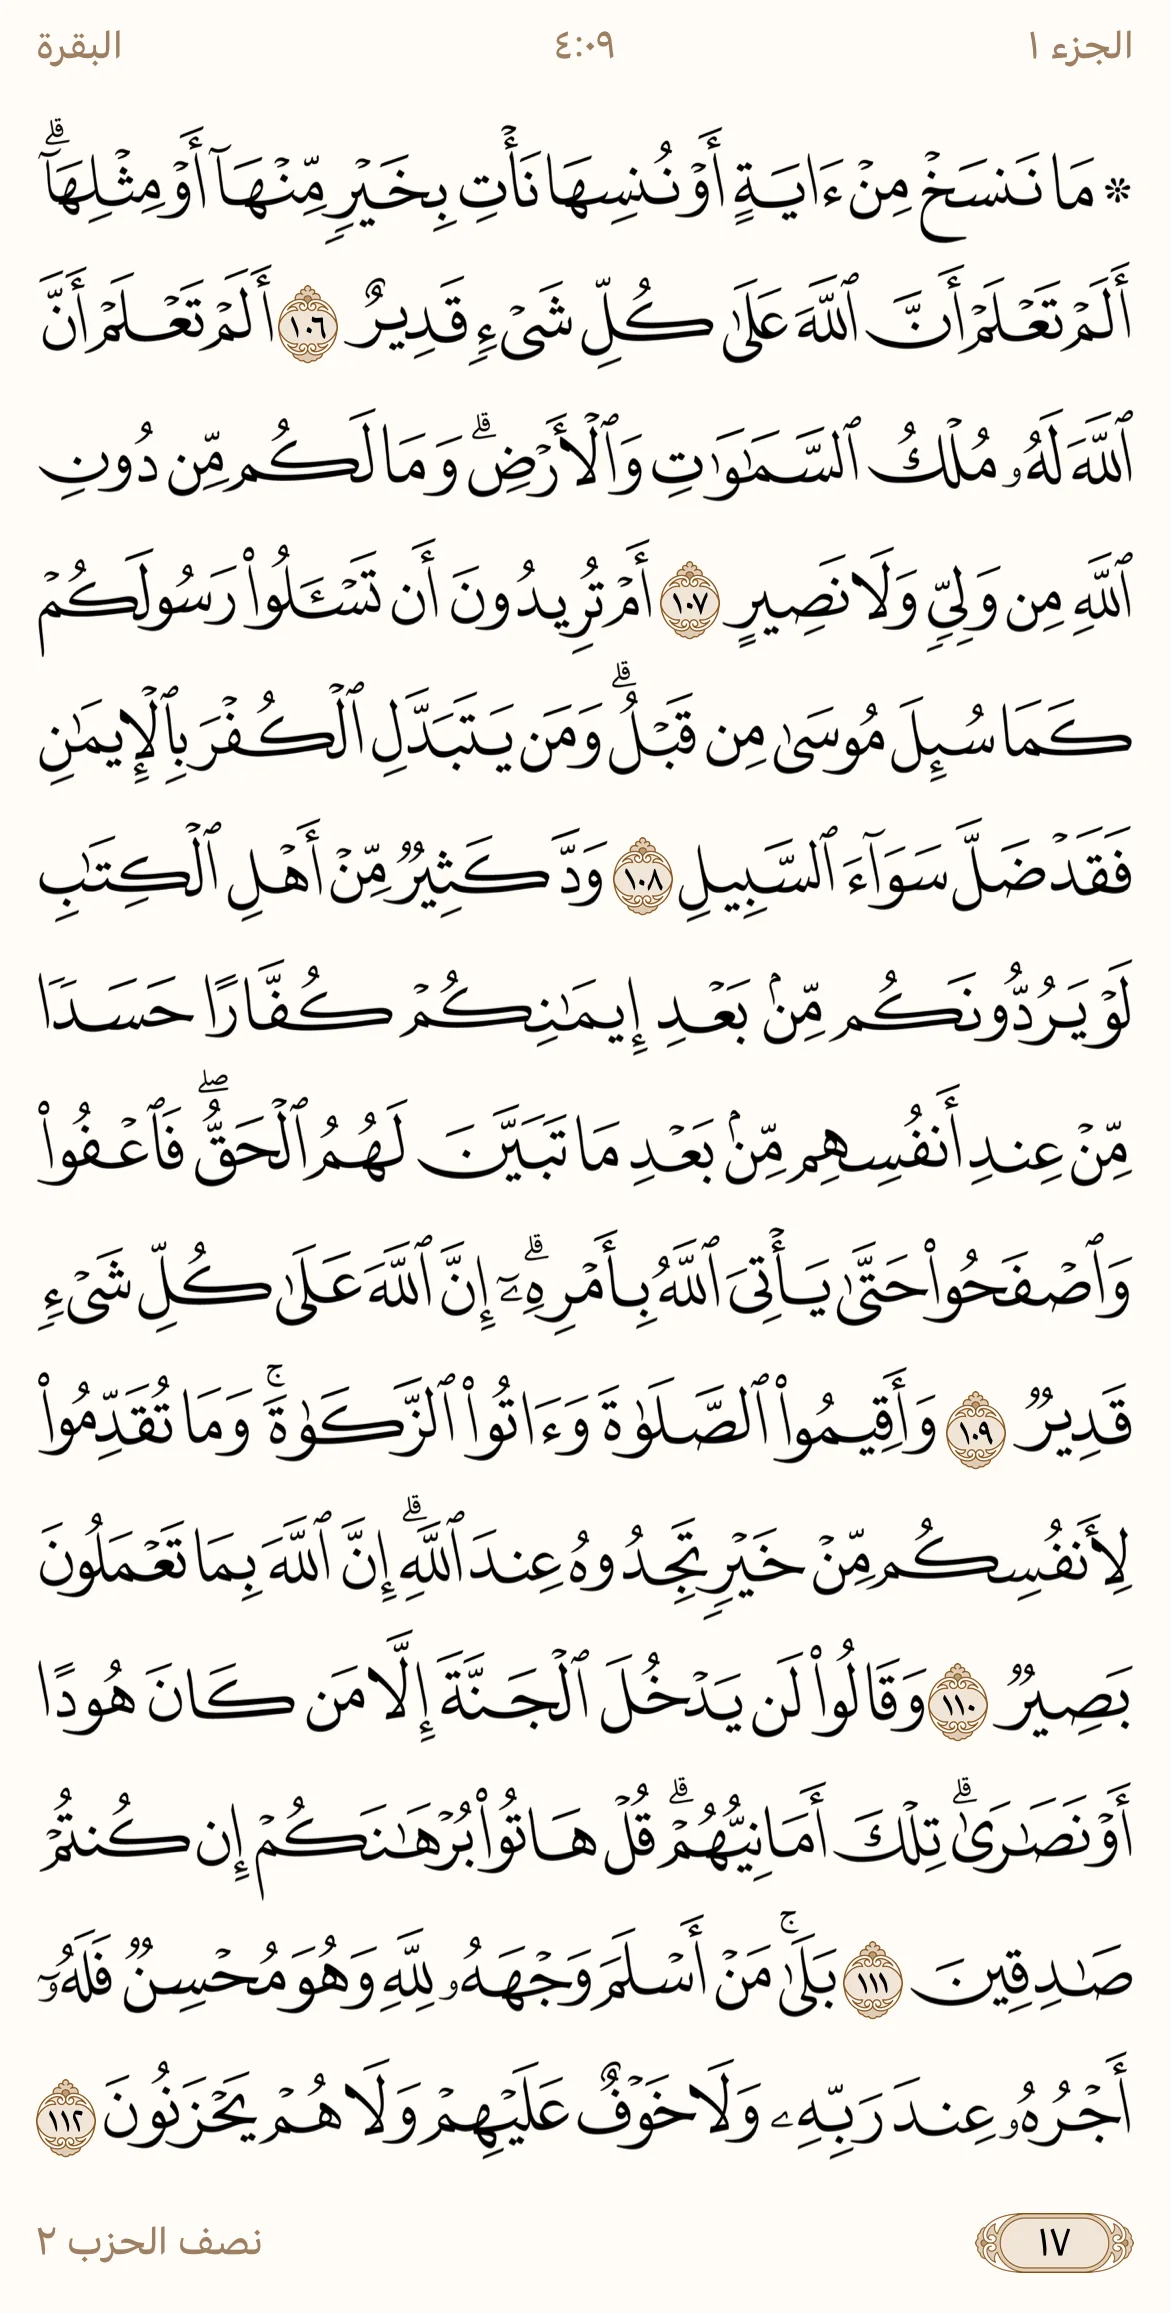 الجزء ١
٤:٠٩
البقرة
* مَا نَنسَخْ مِنْ ءَايَةٍ أَوْ نُنسِهَا نَأْتِ بِخَيْرٍ مِّنْهَآ أَوْ مِثْلِهَآ ۗ
أَلَمْ تَعْلَمْ أَنَّ ٱللَّهَ عَلَىٰ كُلِّ شَىْءٍ قَدِيرٌ ١٠٦ أَلَمْ تَعْلَمْ أَنَّ
ٱللَّهَ لَهُۥ مُلْكُ ٱلسَّمَـٰوَٰتِ وَٱلْأَرْضِ ۗ وَمَا لَكُم مِّن دُونِ
ٱللَّهِ مِن وَلِىٍّ وَلَا نَصِيرٍ ١٠٧ أَمْ تُرِيدُونَ أَن تَسْـَٔلُوا۟ رَسُولَكُمْ
كَمَا سُئِلَ مُوسَىٰ مِن قَبْلُ ۗ وَمَن يَتَبَدَّلِ ٱلْكُفْرَ بِٱلْإِيمَـٰنِ
فَقَدْ ضَلَّ سَوَآءَ ٱلسَّبِيلِ ١٠٨ وَدَّ كَثِيرٌ مِّنْ أَهْلِ ٱلْكِتَـٰبِ
لَوْ يَرُدُّونَكُم مِّنۢ بَعْدِ إِيمَـٰنِكُمْ كُفَّارًا حَسَدًا
مِّنْ عِندِ أَنفُسِهِم مِّنۢ بَعْدِ مَا تَبَيَّنَ لَهُمُ ٱلْحَقُّ ۖ فَٱعْفُوا۟
وَٱصْفَحُوا۟ حَتَّىٰ يَأْتِىَ ٱللَّهُ بِأَمْرِهِۦٓ ۗ إِنَّ ٱللَّهَ عَلَىٰ كُلِّ شَىْءٍ
قَدِيرٌ ١٠٩ وَأَقِيمُوا۟ ٱلصَّلَوٰةَ وَءَاتُوا۟ ٱلزَّكَوٰةَ ۚ وَمَا تُقَدِّمُوا۟
لِأَنفُسِكُم مِّنْ خَيْرٍ تَجِدُوهُ عِندَ ٱللَّهِ ۗ إِنَّ ٱللَّهَ بِمَا تَعْمَلُونَ
بَصِيرٌ ١١٠ وَقَالُوا۟ لَن يَدْخُلَ ٱلْجَنَّةَ إِلَّا مَن كَانَ هُودًا
أَوْ نَصَـٰرَىٰ ۗ تِلْكَ أَمَانِيُّهُمْ ۗ قُلْ هَاتُوا۟ بُرْهَـٰنَكُمْ إِن كُنتُمْ
صَـٰدِقِينَ ١١١ بَلَىٰ ۚ مَنْ أَسْلَمَ وَجْهَهُۥ لِلَّهِ وَهُوَ مُحْسِنٌ فَلَهُۥٓ
أَجْرُهُۥ عِندَ رَبِّهِۦ وَلَا خَوْفٌ عَلَيْهِمْ وَلَا هُمْ يَحْزَنُونَ ١١٢
١٧
نصف الحزب ٢